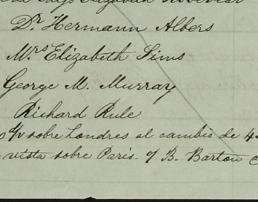 Dr. Hermann Albers
Mrs Elizabeth Sims
George M. Murray
Richard Rule
sobre Londres al cambio de 4
vista sobre Paris. of B. Barton